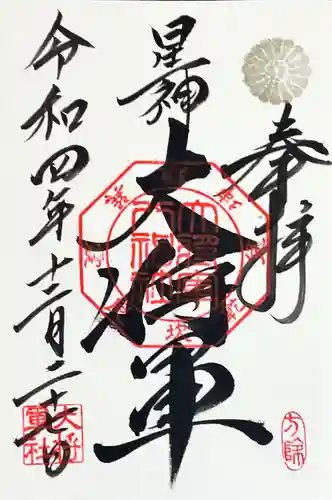 奉拝
星神
大将軍
大将軍神社
令和四年十二月二十七日
大将軍社
方除